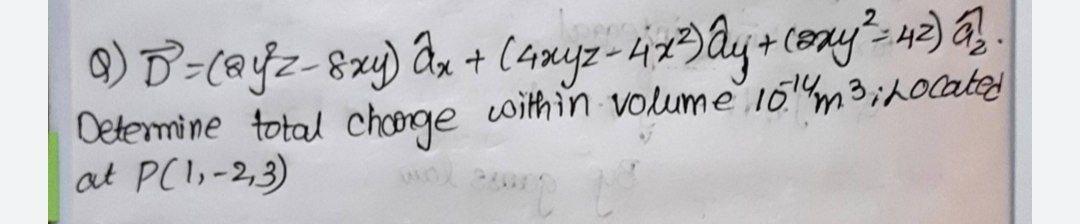 Q) D⃗ = (2y²z - 8xy) âx + (4xyz - 4x²) ây + (2xy² - 4z) âz.
Determine total charge within volume 10⁻¹⁴ m³; Located
at P(1,-2,3)